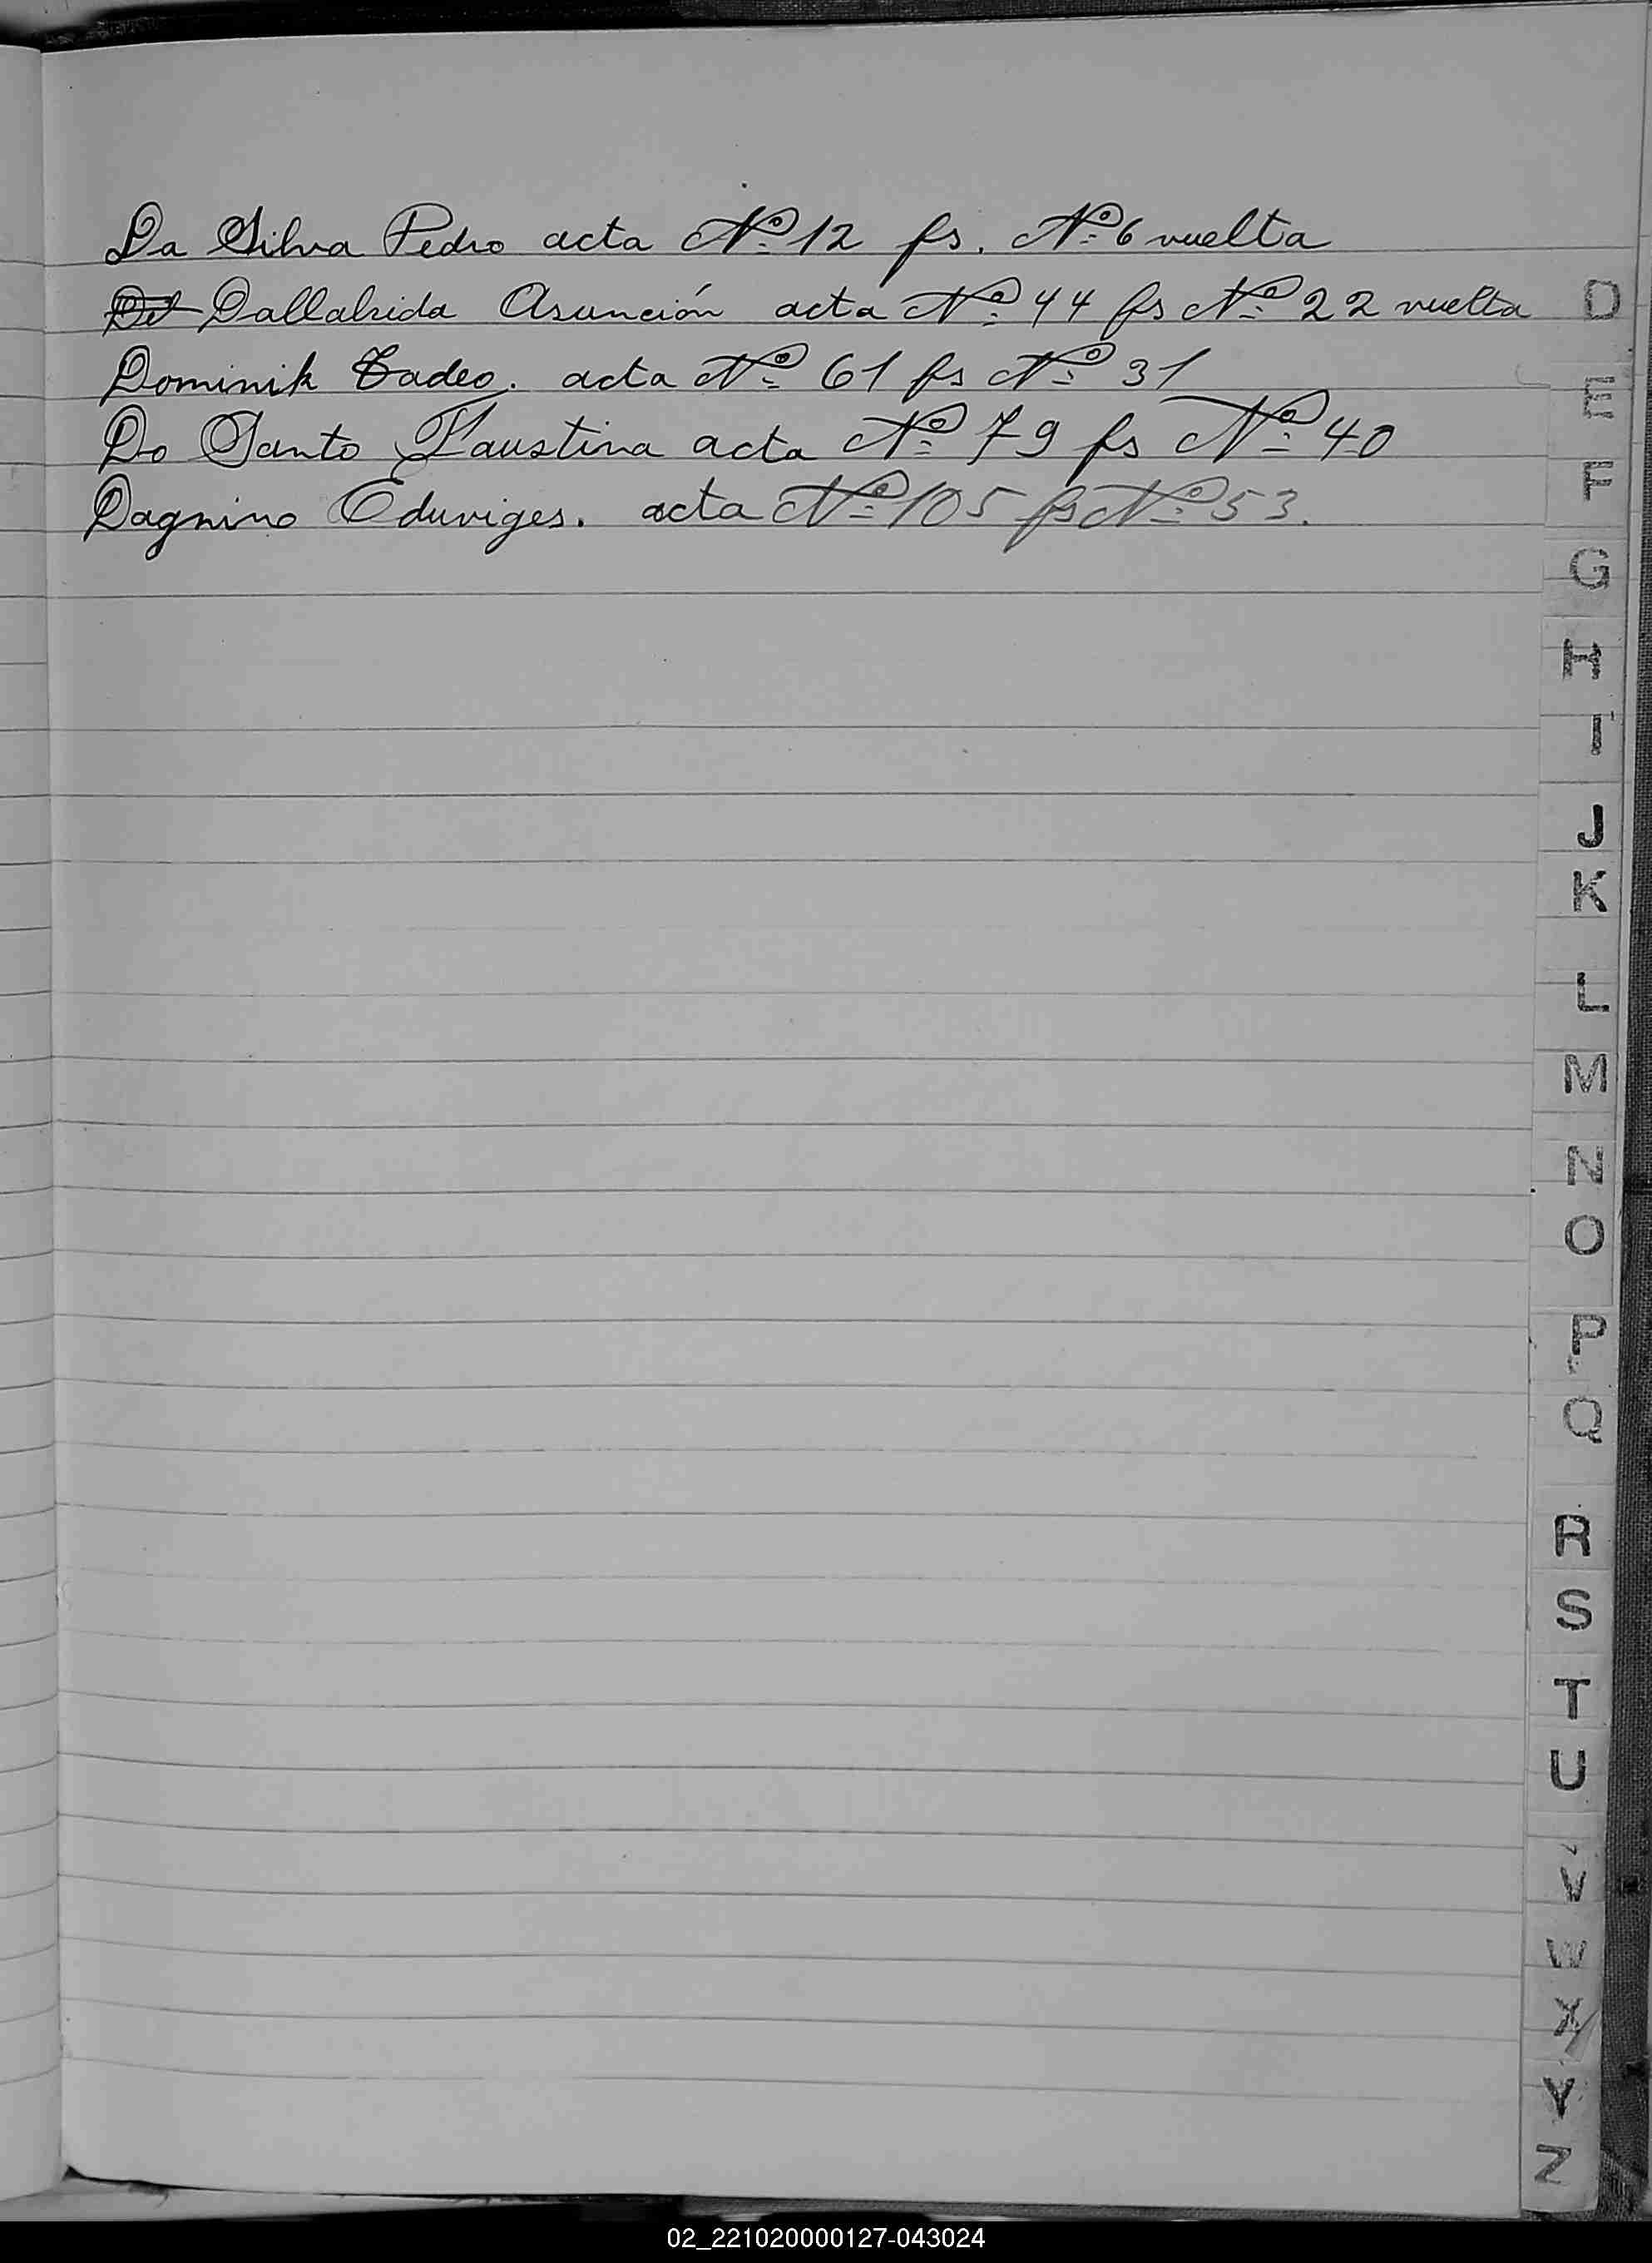 Da Silva Pedro acta Nº 12 fs. Nº 6 vuelta
Dallabrida Asunción acta Nº 44 fs Nº 22 vuelta
Dominik Tadeo. acta Nº 61 fs Nº 31
Do Santo Faustina acta Nº 79 fs Nº 40
Dagnino Eduviges. acta Nº 105 fs Nº 53.
D
E
F
G
H
I
J
K
L
M
N
O
P
Q
R
S
T
U
V
W
X
Y
Z
02_221020000127-043024